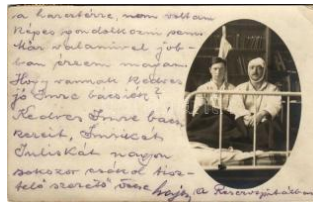 a harctérre, nem voltam
képes gondolkozni sem.
Már valamivel job-
ban érzem magam.
Hogy vannak kedves
jó Imre bácsiék?
Kedves Imre bács
kezeit, Imrikét
Juliskát nagyon
sokszor csókol tisz-
telő szerető öcse